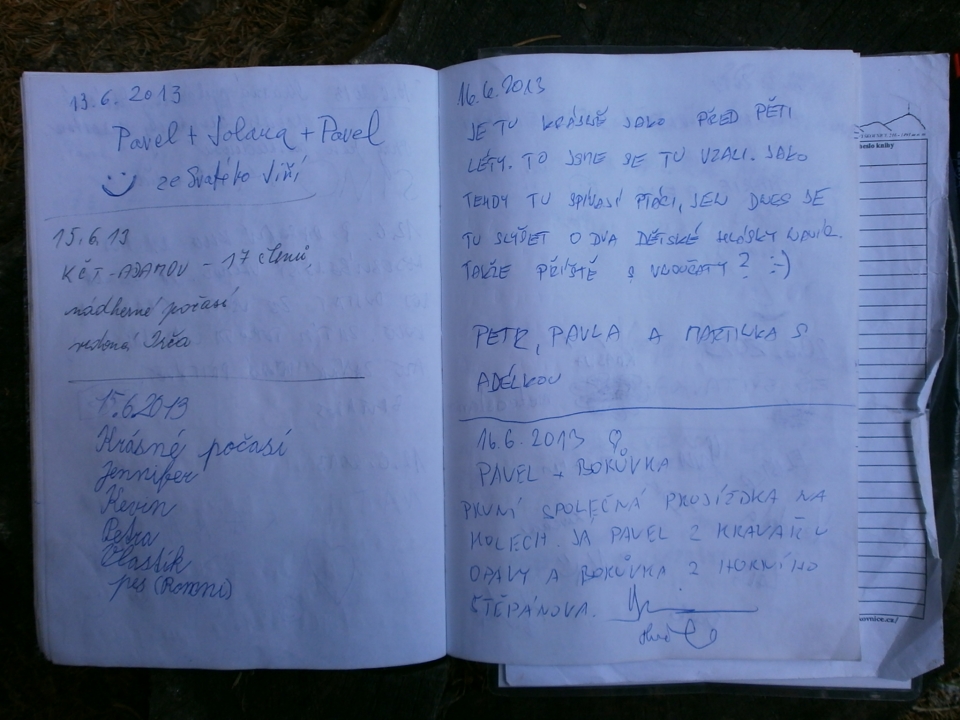 13.6.2013
Pavel + Jolana + Pavel
ze Svatého Jiří
15.6.13
KČT-ADAMOV - 17 členů,
nádherné počasí
15.6.2013
Krásné počasí
Jennifer
Kevin
Petra
Vlastík
pes
16.6.2013
JE TU KRÁSNĚ JAKO PŘED PĚTI
LÉTY. TO JSME SE TU VZALI. JAKO
TEHDY TU ZPÍVAJÍ PTÁCI, JEN DNES JE
TU SLYŠET O DVA DĚTSKÉ HLÁSKY NAVÍC.
TAKŽE PŘÍŠTĚ S VNOUČATY? :-)
PETR, PAVLA A MARTINKA S
ADÉLKOU
16.6.2013
PAVEL + BORŮVKA
PRVNÍ SPOLEČNÁ PROJÍŽDKA NA
KOLECH. JÁ PAVEL Z KRAVAŘ U
OPAVY A BORŮVKA Z HORNÍHO
ŠTĚPÁNOVA.
heslo knihy
ovnice.cz/